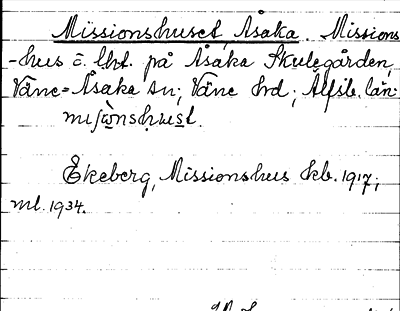 Missionshuset, Åsaka. Missions
-hus å lht. på Åsaka Skulegården,
Väne-Åsaka sn; Väne hrd; Älfsb. län:
Ekeberg, Missionshus kb. 1917;
ml. 1934.